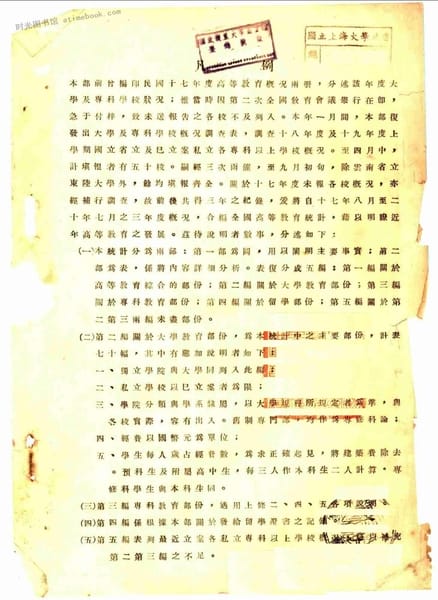 时光图书馆 - atimebook.com
國立上海大學
凡例
本部前曾編印民國十七年度高等教育概況兩册，分述該年度大
學及專科學校狀況；惟當時因第二次全國教育會議舉行在即，
急于付梓，致未送報告各校不及列入。本年一月間，本部復
發出大學及專科學校概況調查表，調查十八年度及十九年度上
學期國立省立及已立案私立各校概況；以上至四月中，
計填報者有五十校。嗣經三次函催，至九月初旬，除雲南省立
東陸大學外，餘均填報齊全。關於十七年度未報各校，亦
經補行調查，故前後共得三年之紀錄，爰將自十七年八月至二
十年七月之三年度概況，合編全國高等教育統計，藉以明瞭近
年高等教育之發展。茲待說明者數問，分述如下：
(一)本統計分爲兩部：第一部爲圖，用以闡明主要事實；第二
部爲表，係將內容詳細分析。表復分成五編：第一編關於
高等教育綜合的部份；第二編關於大學部份；第三編
關於專科教育部份；第四編關於留學部份；第五編關於第
二第三兩編未盡部份。
(二)第二編關於大學教育部份，爲本統計中之主要部份，計表
七十幅，其中有應加說明者如下：
一、獨立學院與大學同列入此編；
二、私立學校以已立案者爲限；
三、學院分類與學系隸屬，以大學規程所規定者爲準，與
各校實際，容有出入。舊制專門部，均作爲專修科論；
四、經費以國幣元爲單位；
五、學生每人歲占經費數，爲求正確起見，將建築費除去
。預科生及附屬高中生，每三人作本科生二人計算，專
修科學生與本科生同。
(三)第三編專科教育部份，適用上條二、四、五各項說明
(四)第四編係根據本部關於發給留學證書之記
(五)第五編表列最近立案各私立專科以上學校概況 以補充
第二第三編之不足。